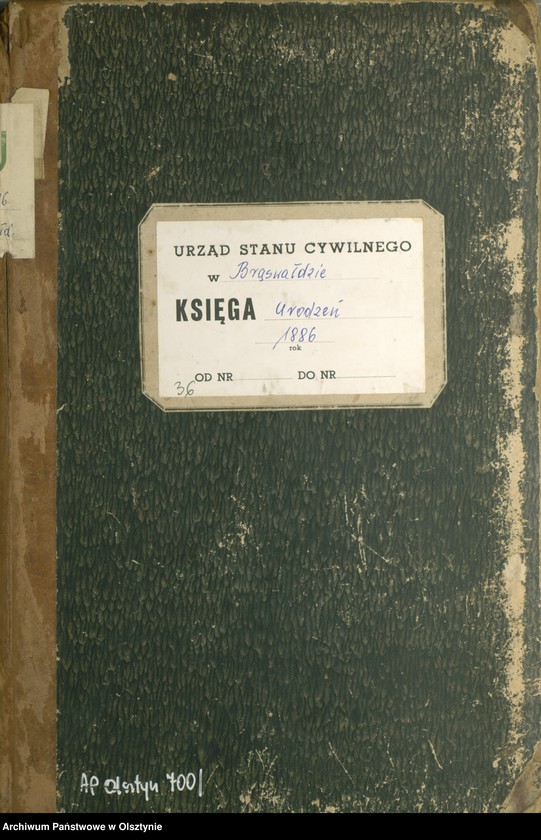 URZĄD STANU CYWILNEGO
w Brąswałdzie
KSIĘGA Urodzeń
1886
rok
OD NR DO NR
36
AP Olsztyn 700/
Archiwum Państwowe w Olsztynie